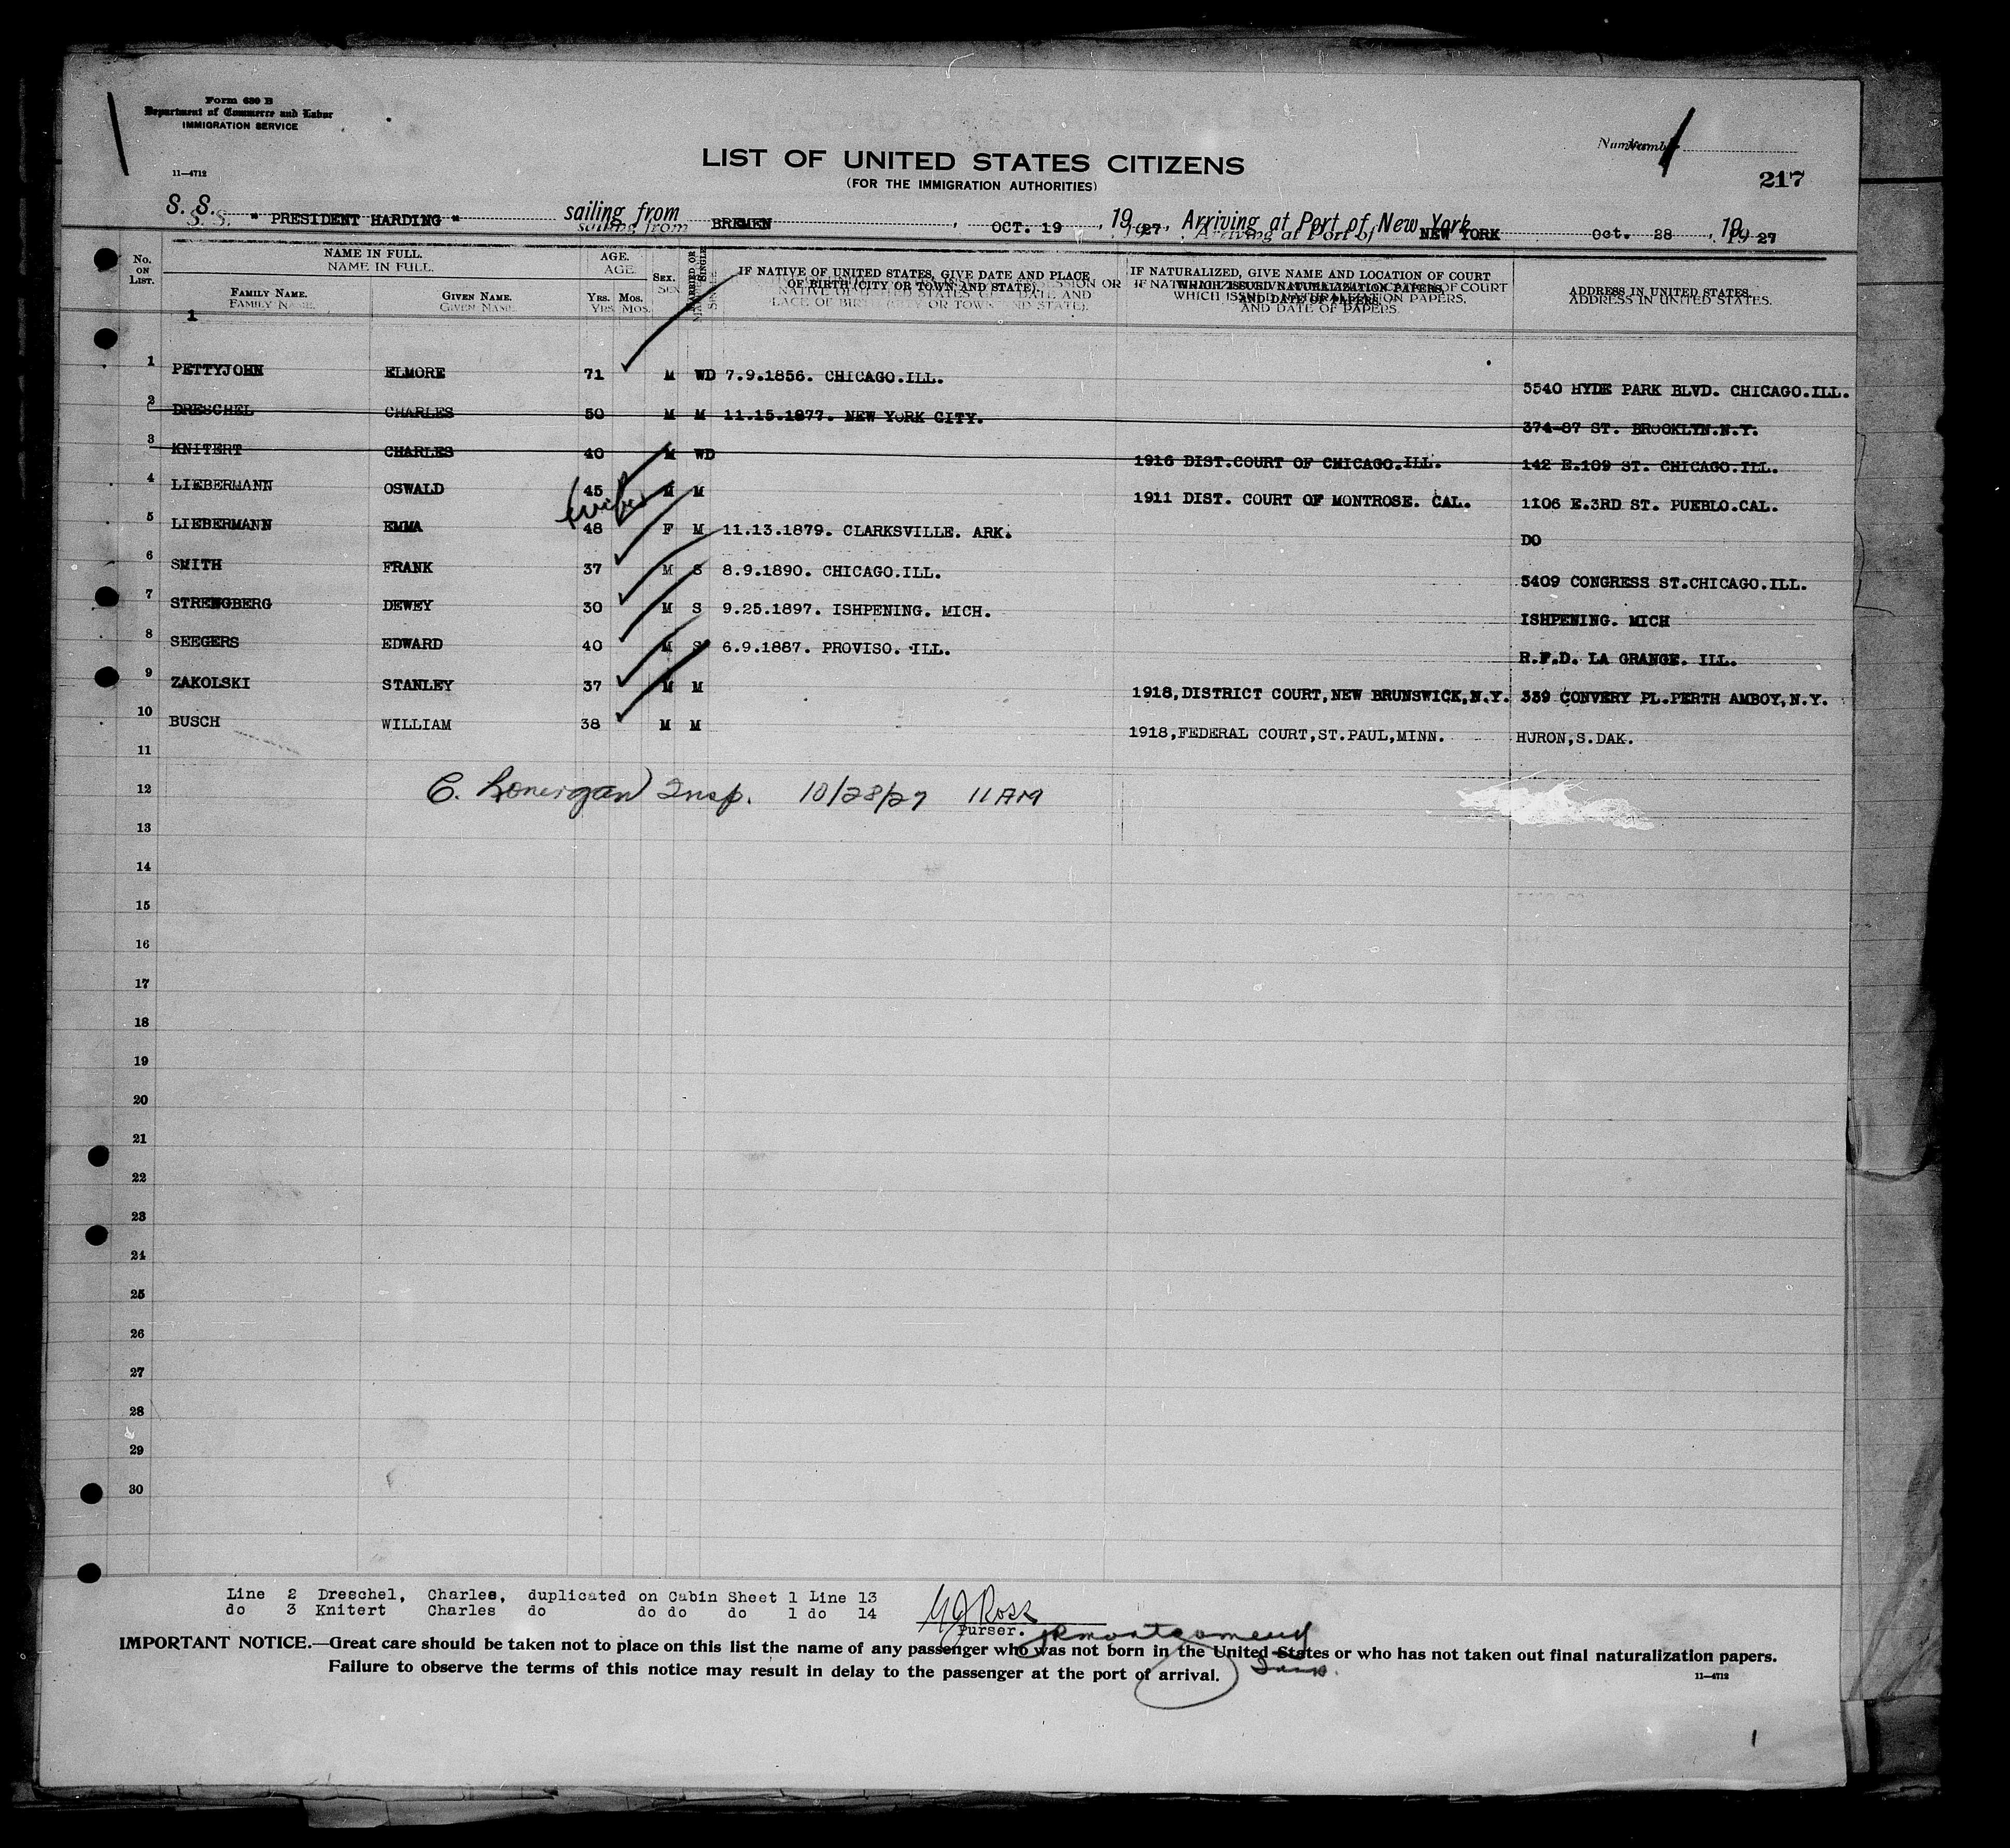 Form 630 B
Department of Commerce and Labor
IMMIGRATION SERVICE
11—4712
Number
217
LIST OF UNITED STATES CITIZENS
(FOR THE IMMIGRATION AUTHORITIES)
S. S. " PRESIDENT HARDING " sailing from BREMEN, OCT. 19, 1927, Arriving at Port of New York NEW YORK Oct. 28, 1927
No. ON LIST.
NAME IN FULL.
FAMILY NAME.
GIVEN NAME.
AGE.
YRS. MOS.
SEX.
MARRIED OR SINGLE
IF NATIVE OF UNITED STATES, GIVE DATE AND PLACE
OF BIRTH (CITY OR TOWN AND STATE).
IF NATURALIZED, GIVE NAME AND LOCATION OF COURT
WHICH ISSUED NATURALIZATION PAPERS,
AND DATE OF PAPERS.
ADDRESS IN UNITED STATES.
1
1 PETTYJOHN ELMORE 71 M WD 7.9.1856. CHICAGO.ILL. 5540 HYDE PARK BLVD. CHICAGO.ILL.
2 DRESCHEL CHARLES 50 M M 11.15.1877. NEW YORK CITY. 374-87 ST. BROOKLYN.N.Y.
3 KNITERT CHARLES 40 M WD 1916 DIST.COURT OF CHICAGO.ILL. 142 E.109 ST. CHICAGO.ILL.
4 LIEBERMANN OSWALD 45 M M 1911 DIST. COURT OF MONTROSE. CAL. 1106 E.3RD ST. PUEBLO.CAL.
wife
5 LIEBERMANN EMMA 48 F M 11.13.1879. CLARKSVILLE. ARK. DO
6 SMITH FRANK 37 M S 8.9.1890. CHICAGO.ILL. 5409 CONGRESS ST.CHICAGO.ILL.
7 STRENGBERG DEWEY 30 M S 9.25.1897. ISHPENING. MICH. ISHPENING. MICH
8 SEEGERS EDWARD 40 M S 6.9.1887. PROVISO. ILL. R.F.D. LA GRANGE. ILL.
9 ZAKOLSKI STANLEY 37 M M 1918,DISTRICT COURT,NEW BRUNSWICK,N.Y. 339 CONVERY PL.PERTH AMBOY,N.Y.
10 BUSCH WILLIAM 38 M M 1918,FEDERAL COURT,ST.PAUL,MINN. HURON,S.DAK.
11
12 C. Lonergan Insp. 10/28/27 11 AM
13
14
15
16
17
18
19
20
21
22
23
24
25
26
27
28
29
30
Line 2 Dreschel, Charles, duplicated on Cabin Sheet 1 Line 13
do 3 Knitert Charles do do do do 1 do 14
Ross
Purser.
JRMontgomery
Insp.
IMPORTANT NOTICE.—Great care should be taken not to place on this list the name of any passenger who was not born in the United States or who has not taken out final naturalization papers.
Failure to observe the terms of this notice may result in delay to the passenger at the port of arrival.
11—4712
1